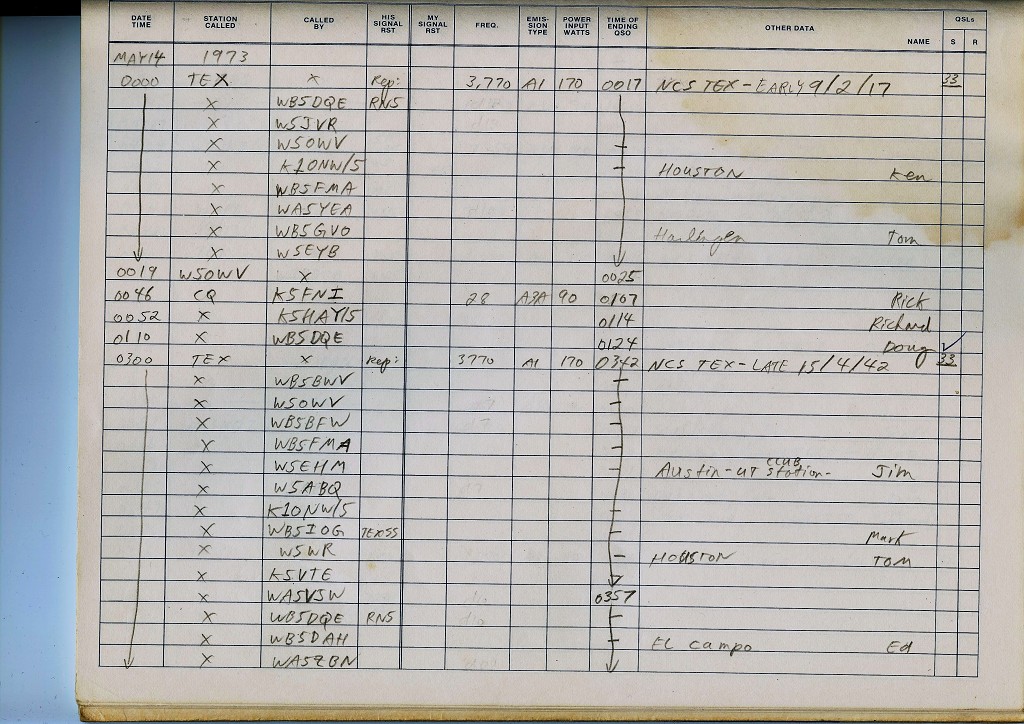 DATE TIME STATION CALLED CALLED BY HIS SIGNAL RST MY SIGNAL RST FREQ. EMIS- SION TYPE POWER INPUT WATTS TIME OF ENDING QSO OTHER DATA NAME QSLs S R
MAY 14 1973
0000 TEX X Rep: 3,770 A1 170 0017 NCS TEX - EARLY 9/2/17 33
X WB5DQE RN5
X W5JVR
X W5OWV
X K1ONW/5 HOUSTON Ken
X WB5FMA
X WA5YEA
X WB5GVO Harlingen Tom
X W5EYB
0019 W5OWV X 0025
0046 CQ K5FNI 28 A3A 90 0107 Rick
0052 X K5HAY/5 0114 Richard
0110 X WB5DQE 0124 Doug ✓
0300 TEX X Rep: 3770 A1 170 0342 NCS TEX - LATE 15/4/42 33
X WB5BWV
X W5OWV
X WB5BFW
X WB5FMA
X W5EHM Austin - UT CLUB Station - Jim
X W5ABQ
X K1ONW/5
X WB5IOG TEXSS Mark
X W5WR HOUSTON TOM
X K5VTE
X WA5VJW 0357
X WB5DQE RN5
X WB5DAH EL Campo Ed
X WA5ZBN